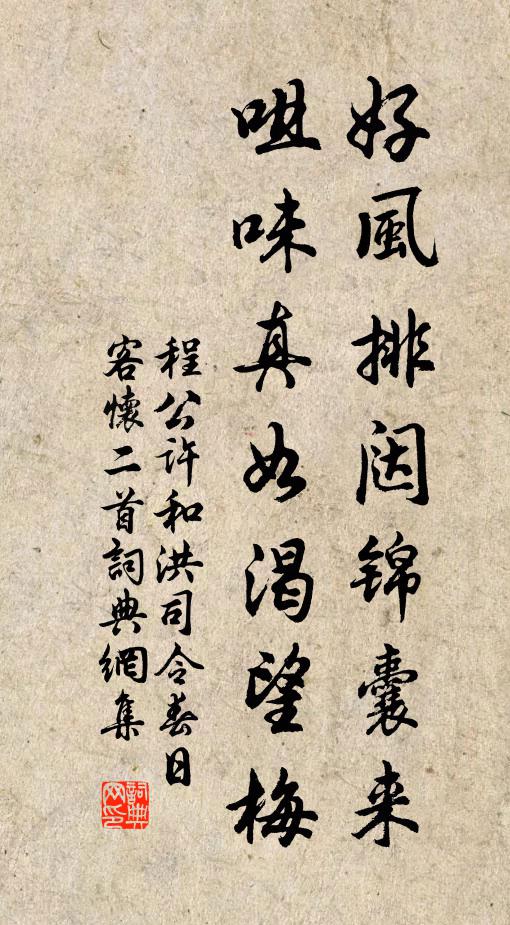 好風排闥錦囊来
咀味真如渴望梅
程公許和洪司令春日
客懷二首詞典網集
詞典网印